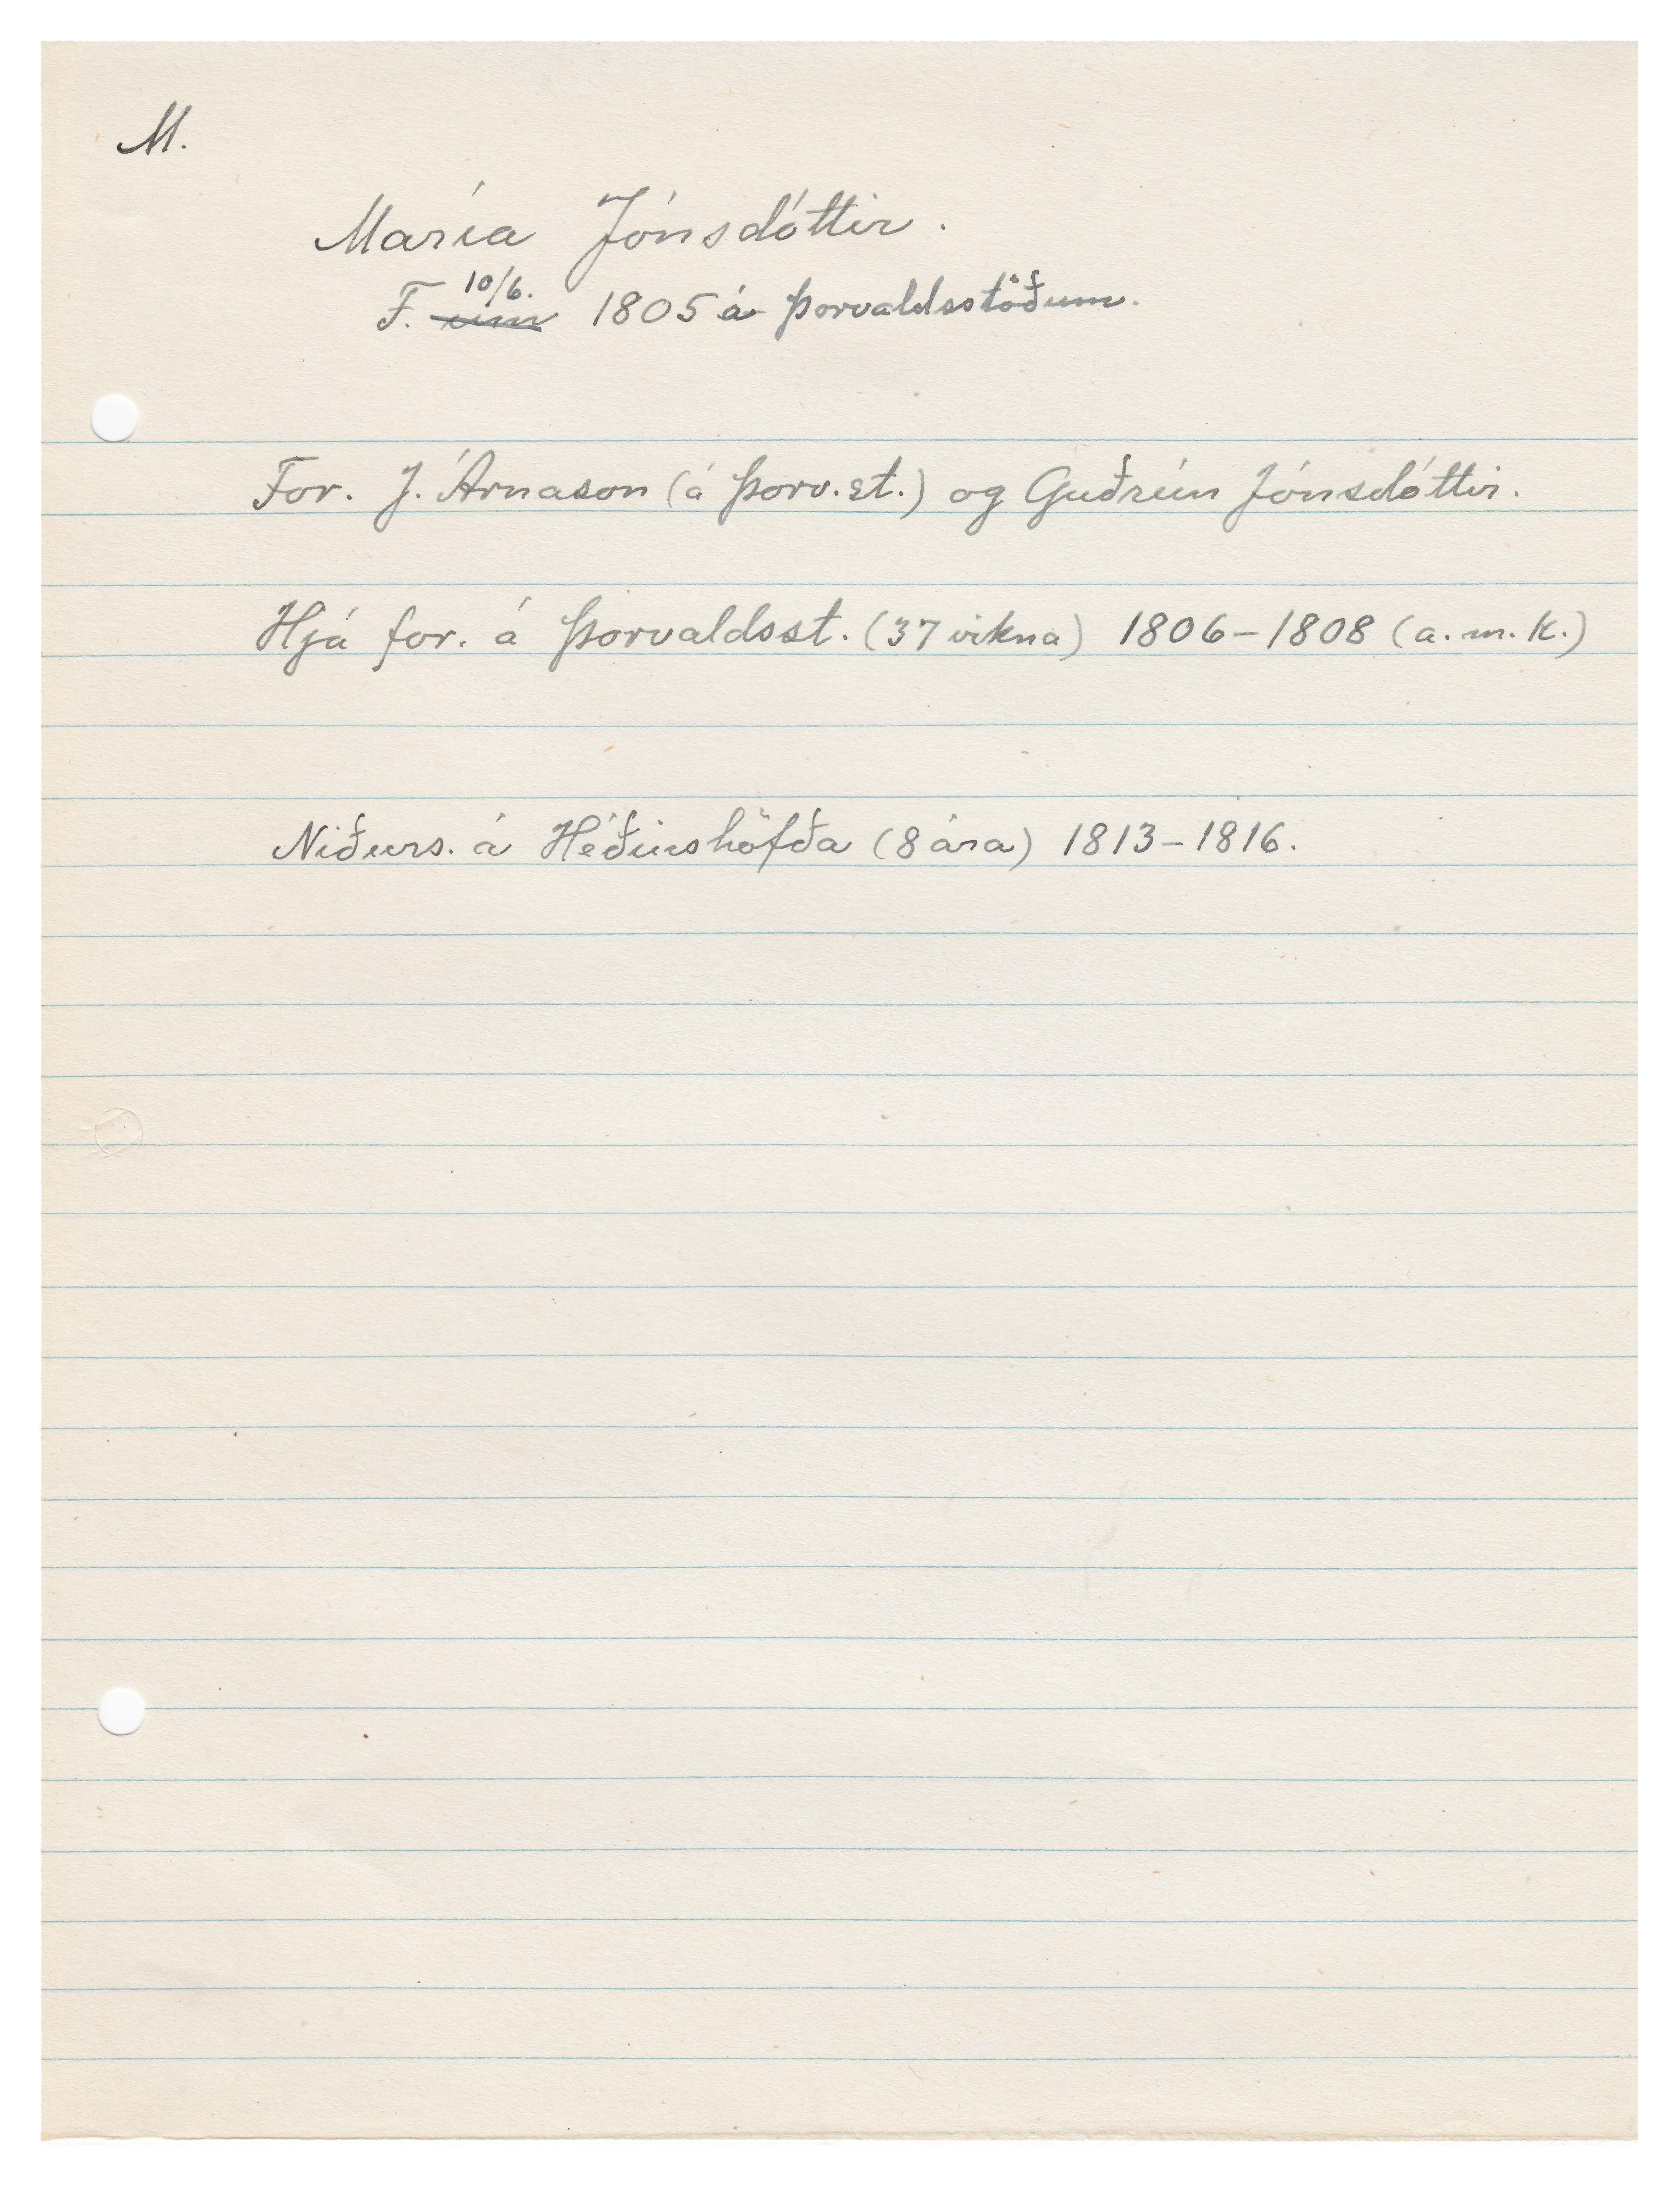 M.
María Jónsdóttir.
F. um 10/6. 1805 á Þorvaldsstöðum.
For. J. Árnason (á Þorv.st.) og Guðrún Jónsdóttir.
Hjá for. á Þorvaldsst. (37 vikna) 1806-1808 (a.m.k.)
Niðurs. á Héðinshöfða (8 ára) 1813-1816.